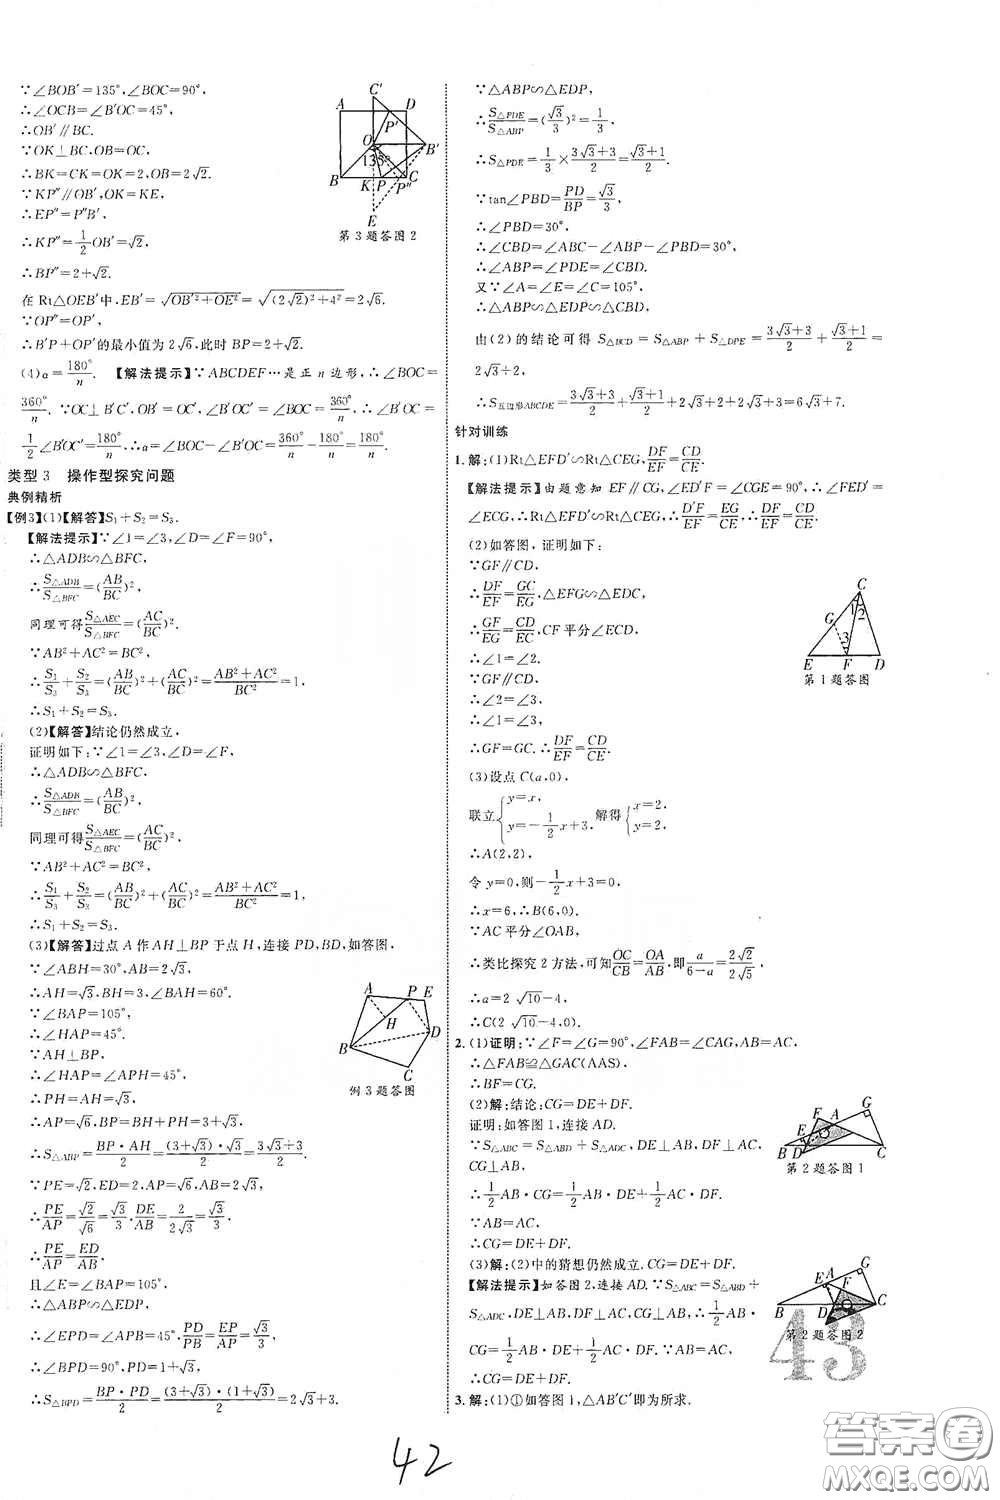 ∵∠BOB′=135°,∠BOC=90°,
∴∠OCB=∠B′OC=45°,
∴OB′∥BC.
∵OK⊥BC,OB=OC,
∴BK=CK=OK=2,OB=2√2.
∵KP″∥OB′,OK=KE,
∴EP″=P″B′,
∴KP″=1/2OB′=√2,
∴BP″=2+√2.
在 Rt△OEB′中,EB′=√(OB′²+OE²)=√((2√2)²+4²)=2√6.
∵OP″=OP′,
∴B′P+OP′的最小值为 2√6,此时 BP=2+√2.
(4)α=180°/n. 【解法提示】∵ABCDEF…是正 n 边形,∴∠BOC=
360°/n. ∵OC⊥B′C′,OB′=OC′,∴∠B′OC′=∠BOC=360°/n,∴∠B′OC=
1/2∠B′OC′=180°/n,∴α=∠BOC-∠B′OC=360°/n-180°/n=180°/n.
类型 3 操作型探究问题
典例精析
【例3】(1)【解答】S₁+S₂=S₃.
【解法提示】∵∠1=∠3,∠D=∠F=90°,
∴△ADB∽△BFC,
∴S△ADB/S△BFC=(AB/BC)²,
同理可得S△AEC/S△BFC=(AC/BC)².
∵AB²+AC²=BC²,
∴S₁/S₃+S₂/S₃=(AB/BC)²+(AC/BC)²=(AB²+AC²)/BC²=1,
∴S₁+S₂=S₃.
(2)【解答】结论仍然成立,
证明如下:∵∠1=∠3,∠D=∠F,
∴△ADB∽△BFC,
∴S△ADB/S△BFC=(AB/BC)²,
同理可得S△AEC/S△BFC=(AC/BC)²,
∵AB²+AC²=BC²,
∴S₁/S₃+S₂/S₃=(AB/BC)²+(AC/BC)²=(AB²+AC²)/BC²=1,
∴S₁+S₂=S₃.
(3)【解答】过点 A 作 AH⊥BP于点 H,连接 PD,BD,如答图,
∵∠ABH=30°,AB=2√3,
∴AH=√3,BH=3,∠BAH=60°.
∵∠BAP=105°,
∴∠HAP=45°.
∵AH⊥BP,
∴∠HAP=∠APH=45°,
∴PH=AH=√3,
∴AP=√6,BP=BH+PH=3+√3,
∴S△ABP=BP·AH/2=(3+√3)·√3/2=(3√3+3)/2.
∵PE=√2,ED=2,AP=√6,AB=2√3,
∴PE/AP=√2/√6=√3/3,DE/AB=2/(2√3)=√3/3.
∴PE/AP=ED/AB.
且∠E=∠BAP=105°,
∴△ABP∽△EDP,
∴∠EPD=∠APB=45°,PD/PB=EP/AP=√3/3,
∴∠BPD=90°,PD=1+√3,
∴S△BPD=BP·PD/2=(3+√3)·(1+√3)/2=2√3+3.
A
B
C
D
C′
P′
O
B′
135°
K
P
P″
E
第 3 题答图 2
A
P
E
H
D
B
C
例 3 题答图
∵△ABP∽△EDP,
∴S△PDE/S△ABP=(√3/3)²=1/3,
∴S△PDE=1/3×(3√3+3)/2=(√3+1)/2.
∵tan∠PBD=PD/BP=√3/3,
∴∠PBD=30°,
∴∠CBD=∠ABC-∠ABP-∠PBD=30°,
∴∠ABP=∠PDE=∠CBD.
又∵∠A=∠E=∠C=105°,
∴△ABP∽△EDP∽△CBD.
由 (2) 的结论可得 S△BCD=S△ABP+S△DPE=(3√3+3)/2+(√3+1)/2=
2√3+2,
∴S五边形ABCDE=(3√3+3)/2+(√3+1)/2+2√3+2+2√3+3=6√3+7.
针对训练
1.解:(1)Rt△EFD′∽Rt△CEG,DF/EF=CD/CE.
【解法提示】由题意知 EF∥CG,∠ED′F=∠CGE=90°,∴∠FED′=
∠ECG,∴Rt△EFD′∽Rt△CEG,∴D′F/EF=EG/CE,∴DF/EF=CD/CE.
(2)如答图,证明如下:
∵GF∥CD,
∴DF/EF=GC/EG,△EFG∽△EDC,
∴GF/EG=CD/CE,CF平分∠ECD,
∴∠1=∠2.
∵GF∥CD,
∴∠2=∠3,
∴∠1=∠3,
∴GF=GC.∴DF/EF=CD/CE.
(3)设点 C(a,0),
联立{y=x, y=-1/2x+3. 解得{x=2. y=2,
∴A(2,2),
令 y=0,则-1/2x+3=0,
∴x=6,∴B(6,0).
∵AC平分∠OAB,
∴类比探究 2 方法,可知OC/CB=OA/AB,即a/(6-a)=2√2/(2√5),
∴a=2√10-4,
∴C(2√10-4,0)
2.(1)证明:∵∠F=∠G=90°,∠FAB=∠CAG,AB=AC,
∴△FAB≌△GAC(AAS),
∴BF=CG.
(2)解:结论:CG=DE+DF.
证明:如答图 1,连接 AD.
∵S△ABC=S△ABD+S△ADC,DE⊥AB,DF⊥AC,
CG⊥AB,
∴1/2AB·CG=1/2AB·DE+1/2AC·DF.
∵AB=AC,
∴CG=DE+DF.
(3)解:(2)中的猜想仍然成立,CG=DE+DF.
【解法提示】如答图 2,连接 AD.∵S△ABC=S△ABD+
S△ADC,DE⊥AB,DF⊥AC,CG⊥AB,∴1/2AB·
CG=1/2AB·DE+1/2AC·DF.∵AB=AC,
∴CG=DE+DF.
3.解:(1)①如答图 1,△AB′C′即为所求.
C
1
2
G
3
E
F
D
第 1 题答图
G
F A
E
B
D
C
第 2 题答图 1
G
E A F
B
D
C
第 2 题答图 2
43
42
答案圈
MXQE.COM